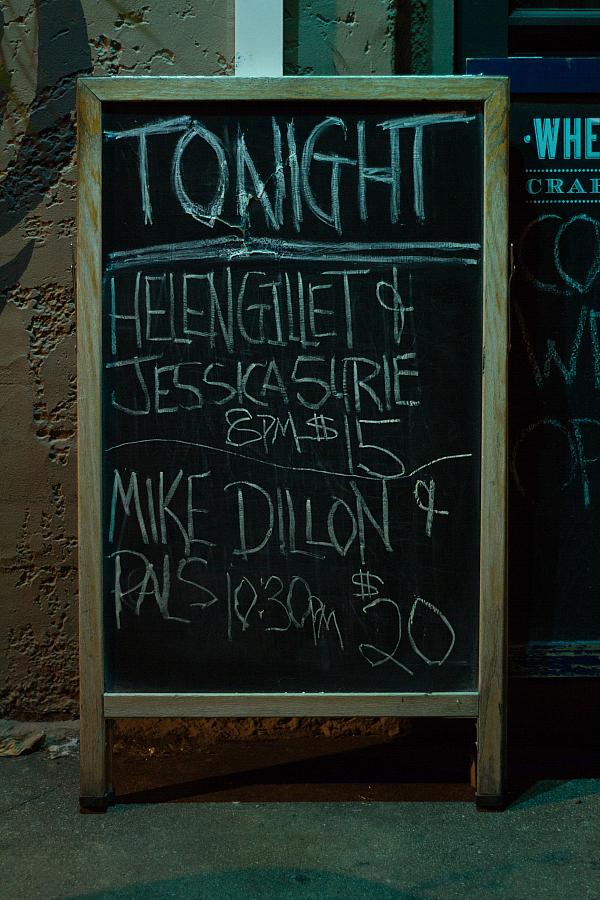 TONIGHT
HELEN GILLET &
JESSICA SURIE
8PM $15
MIKE DILLON &
PALS 10:30PM $20
·WHE
CRAF
CO
WI
OP